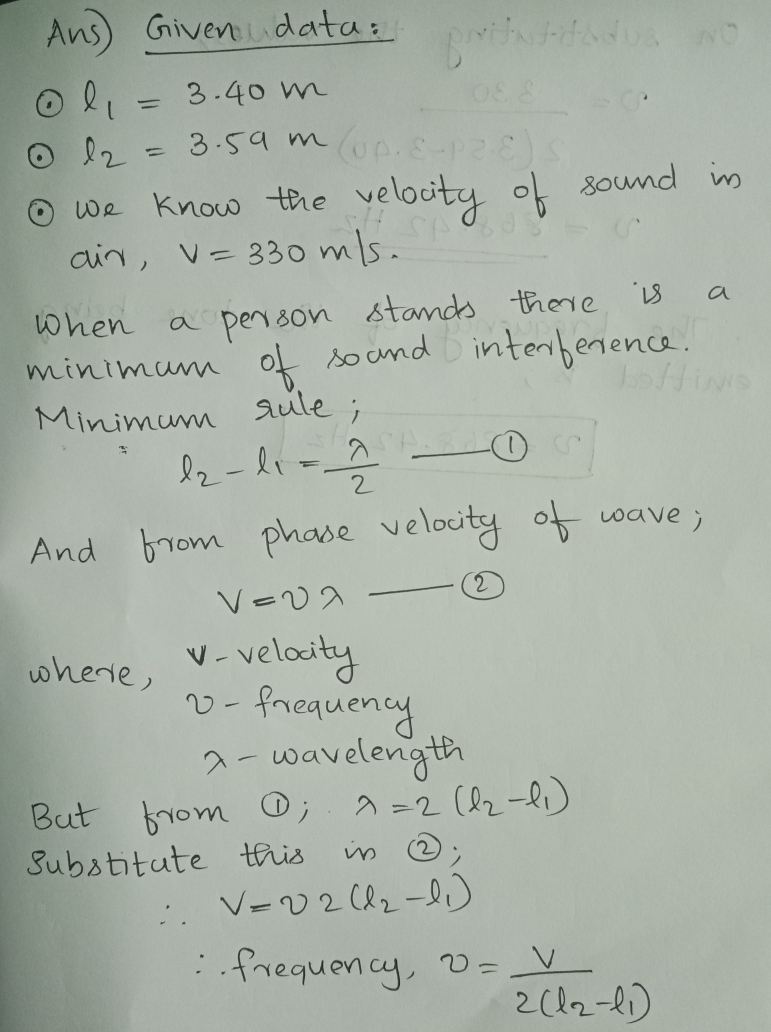 Ans) Given data:
⊙ l₁ = 3.40 m
⊙ l₂ = 3.59 m
⊙ we know the velocity of sound in
air, V = 330 m/s.
When a person stands there is a
minimum of sound interference.
Minimum rule;
l₂ - l₁ = λ/2 —— ①
And from phase velocity of wave;
V = νλ —— ②
where, V - velocity
ν - frequency
λ - wavelength
But from ①; λ = 2 (l₂ - l₁)
Substitute this in ②;
∴ V = ν 2 (l₂ - l₁)
∴ frequency, ν = V / 2(l₂ - l₁)